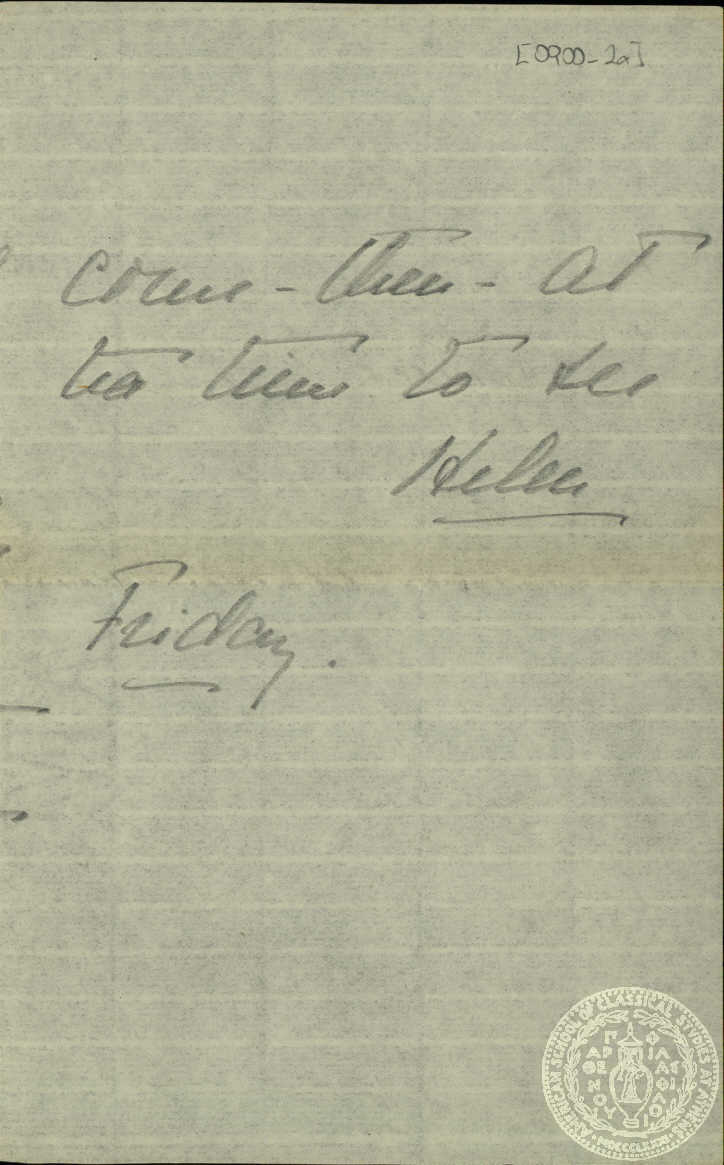 [0900-2a]
come - then - at
tea time to see
Helen
Friday.
AMERICAN SCHOOL OF CLASSICAL STUDIES AT ATHENS
ΠΑΡΘΕΝΟΥ ΦΙΛΑΣ ΦΙΛΟΙ
MDCCCLXXXI